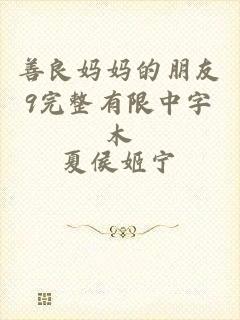 善良妈妈的朋友
9完整有限中字
木
夏侯姬宁